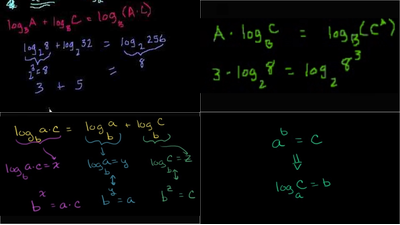 log_B A + log_B C = log_B (A·C)
log_2 8 + log_2 32 = log_2 256
2^3 = 8
8
3 + 5 =
A · log_B C = log_B (C^A)
3 · log_2 8 = log_2 8^3
log_b a·c = log_b a + log_b c
log_b a·c = x
log_b a = y
log_b c = z
b^x = a·c
b^y = a
b^z = c
a^b = c
⇓
log_a c = b